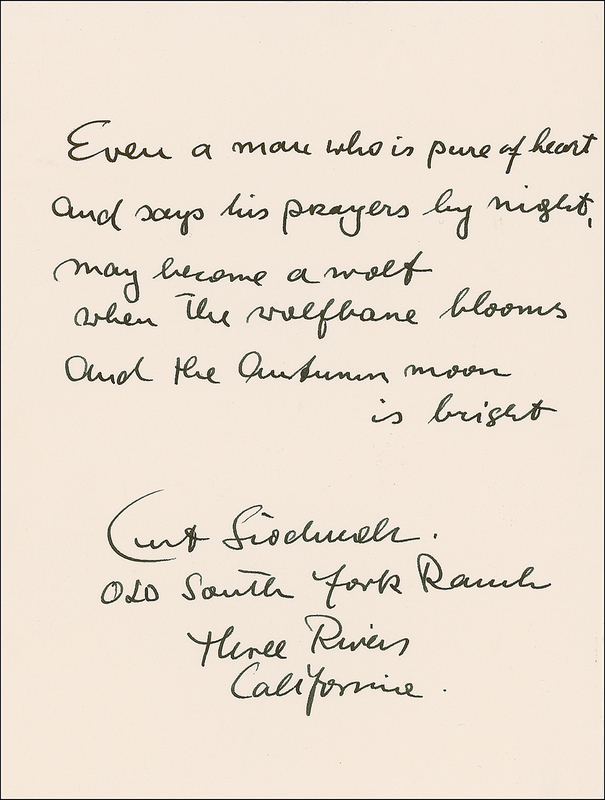 Even a man who is pure of heart
and says his prayers by night,
may become a wolf
when the wolfbane blooms
and the Autumn moon
is bright
Curt Siodmak.
OLD South Fork Ranch
Three Rivers
California.